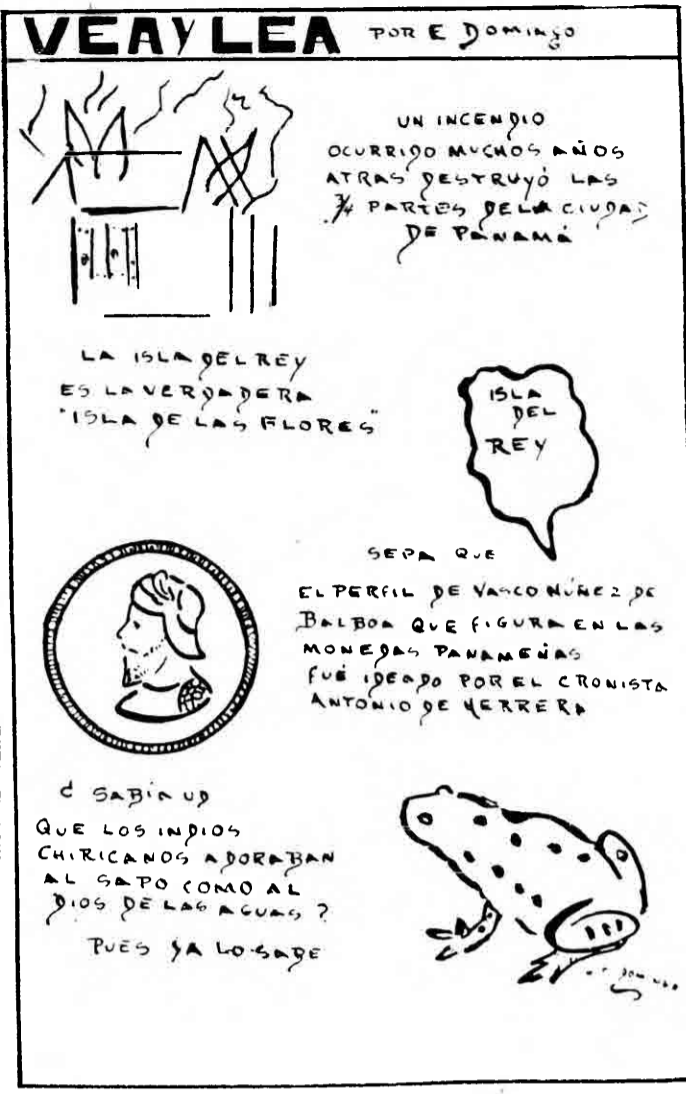 VEA Y LEA POR E DOMINGO
UN INCENDIO
OCURRIDO MUCHOS AÑOS
ATRAS DESTRUYÓ LAS
3/4 PARTES DE LA CIUDAD
DE PANAMÁ
LA ISLA DEL REY
ES LA VERDADERA
"ISLA DE LAS FLORES"
ISLA
DEL
REY
SEPA QUE
EL PERFIL DE VASCO NUÑEZ DE
BALBOA QUE FIGURA EN LAS
MONEDAS PANAMEÑAS
FUÉ IDEADO POR EL CRONISTA
ANTONIO DE HERRERA
¿ SABÍA UD
QUE LOS INDIOS
CHIRICANOS ADORABAN
AL SAPO COMO AL
DIOS DE LAS AGUAS ?
PUES YA LO SABE
DOMINGO